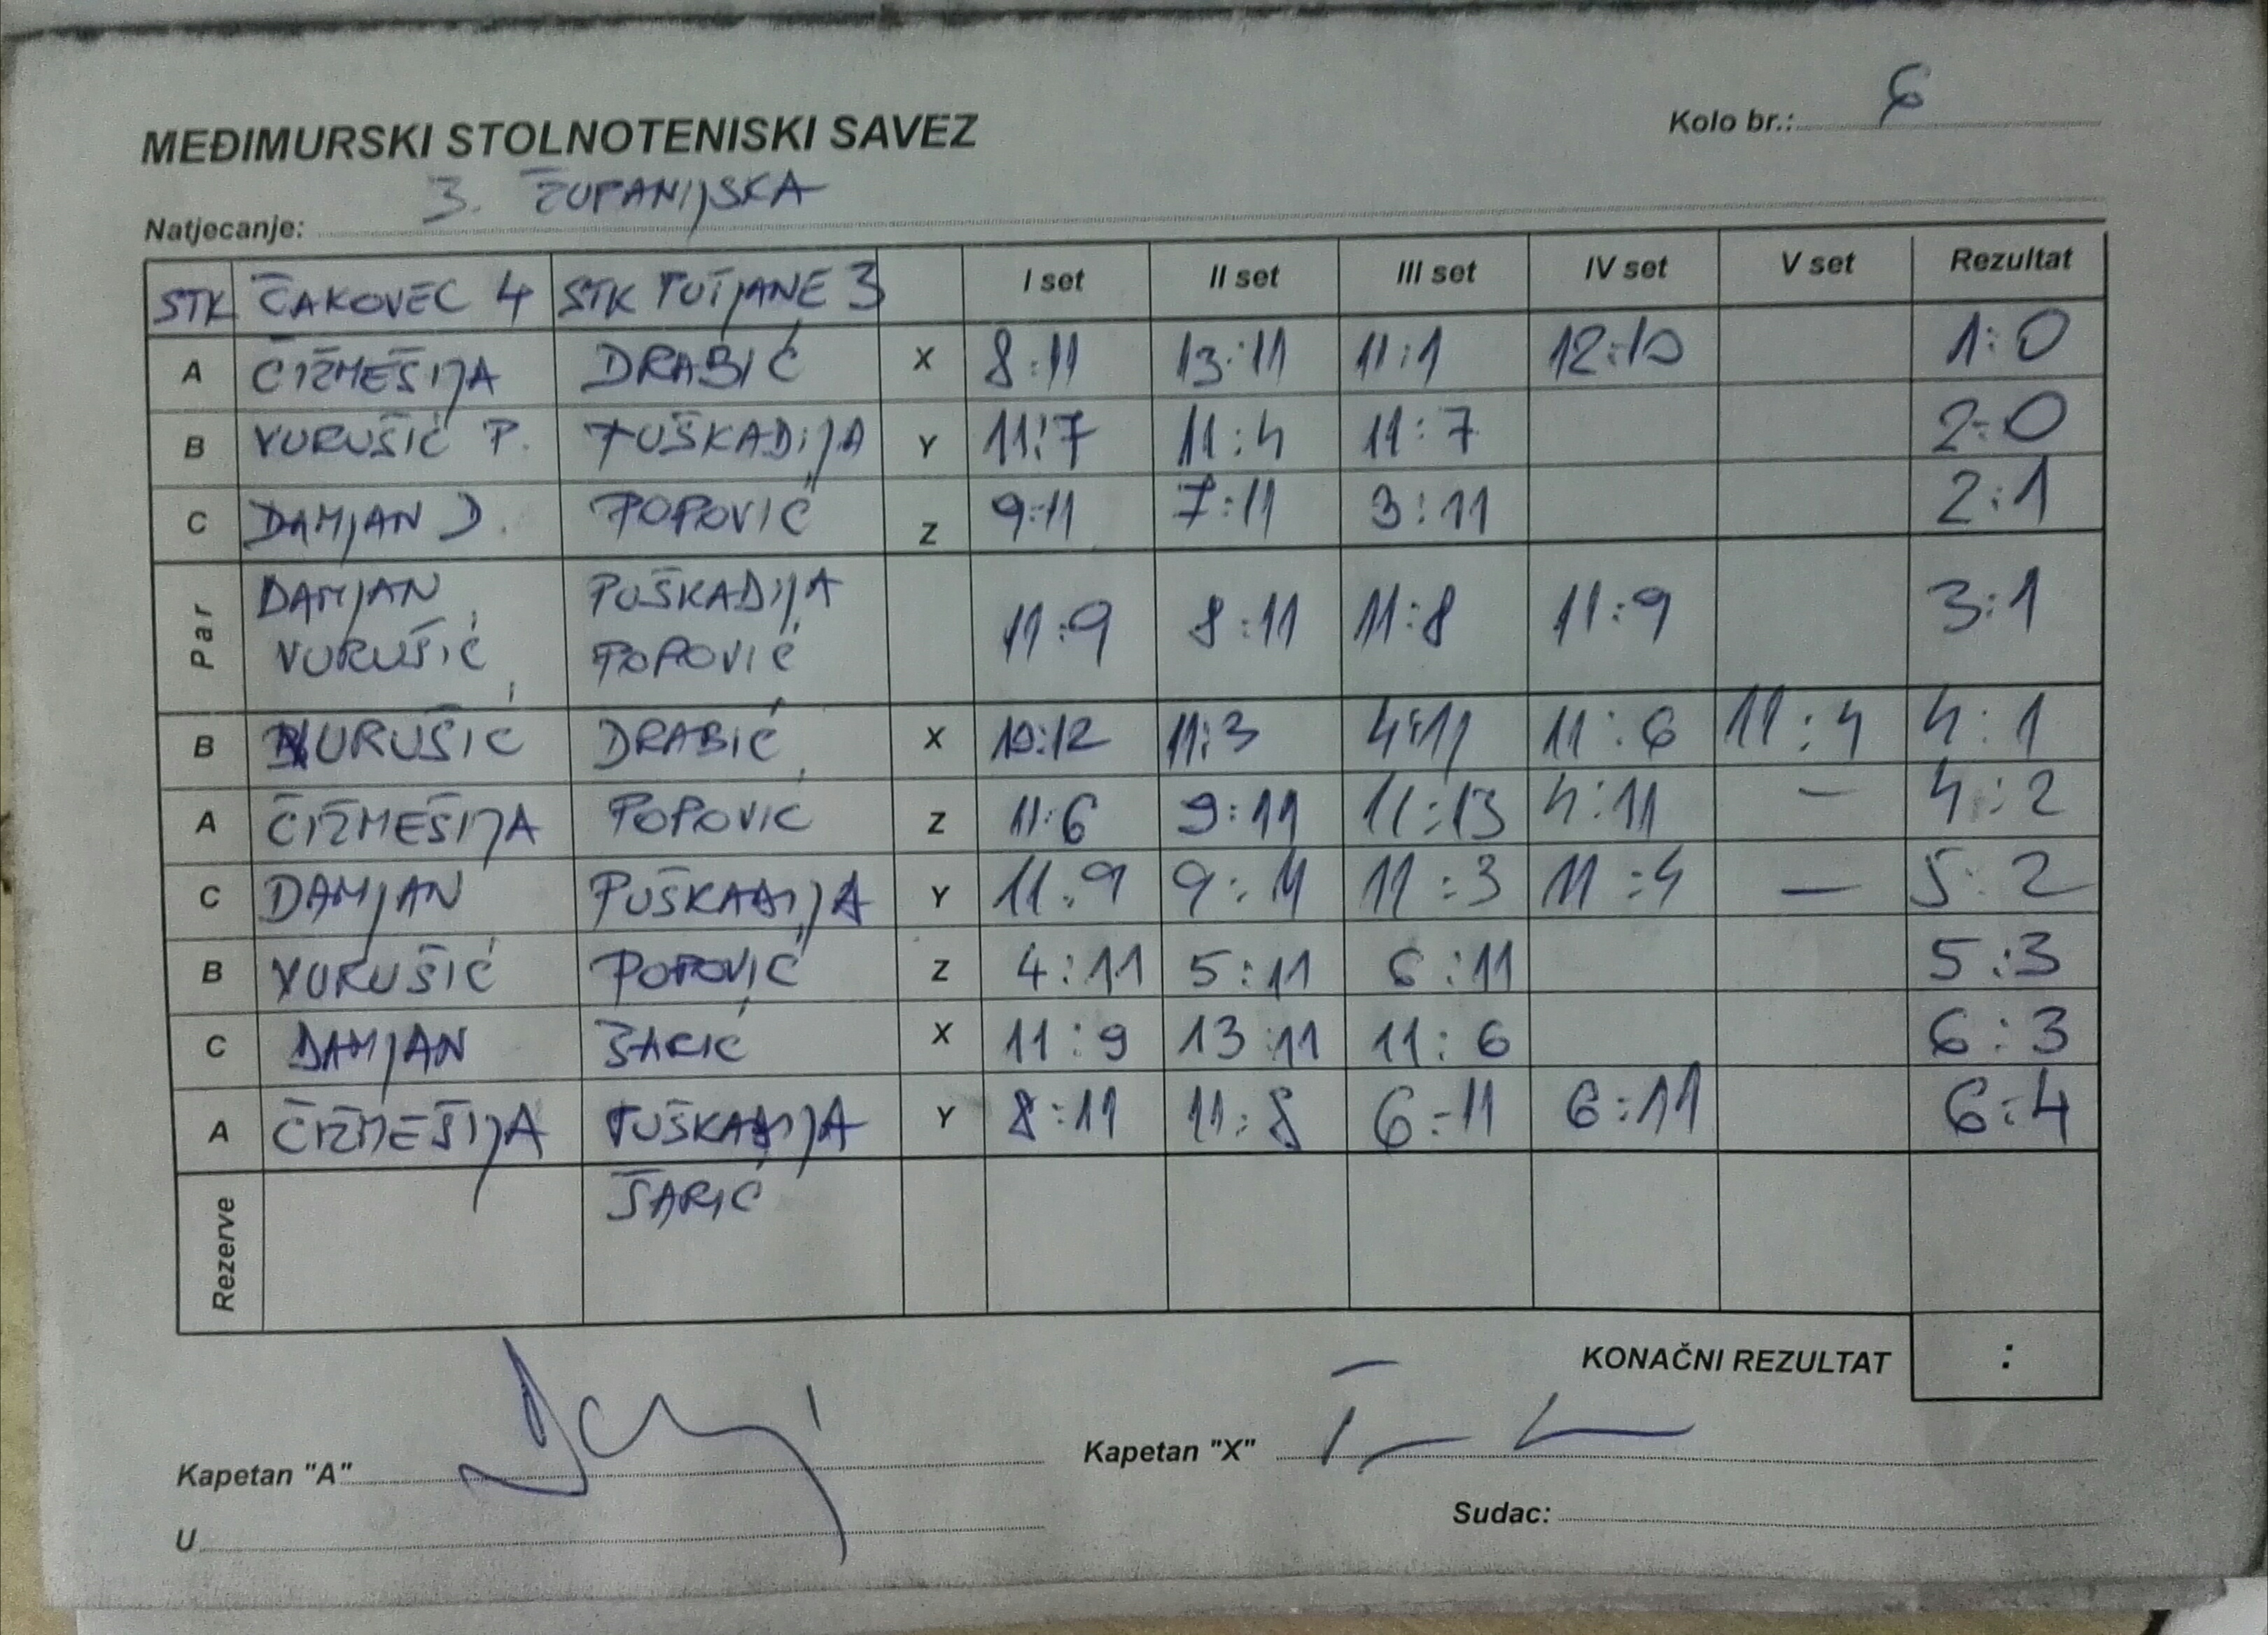 Kolo br.: 6
MEĐIMURSKI STOLNOTENISKI SAVEZ
Natjecanje: 3. ŽUPANIJSKA
STK ČAKOVEC 4 STK PUTJANE 3 I set II set III set IV set V set Rezultat
A ČIŽMEŠIJA DRABIĆ X 8:11 13:11 11:1 12:10 1:0
B VURUŠIĆ P. PUŠKADIJA Y 11:7 11:4 11:7 2:0
C DAMJAN D. POPOVIĆ Z 9:11 7:11 3:11 2:1
Par DAMJAN PUŠKADIJA 11:9 8:11 11:8 11:9 3:1
VURUŠIĆ POPOVIĆ
B VURUŠIĆ DRABIĆ X 10:12 11:3 4:11 11:6 11:4 4:1
A ČIŽMEŠIJA POPOVIĆ Z 11:6 9:11 11:13 4:11 — 4:2
C DAMJAN PUŠKADIJA Y 11:9 9:11 11:3 11:4 — 5:2
B VURUŠIĆ POPOVIĆ Z 4:11 5:11 6:11 5:3
C DAMJAN ŠARIĆ X 11:9 13:11 11:6 6:3
A ČIŽMEŠIJA PUŠKADIJA Y 8:11 11:8 6:11 6:11 6:4
Rezerve ŠARIĆ
KONAČNI REZULTAT :
Kapetan "A" Kapetan "X"
U Sudac: